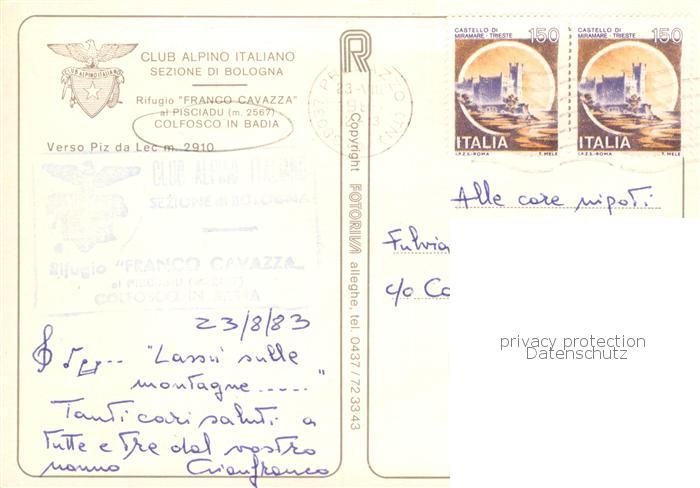 CLUB ALPINO ITALIANO
SEZIONE DI BOLOGNA
CLUB ALPINO ITALIANO
Rifugio "FRANCO CAVAZZA"
al PISCIADU (m. 2567)
COLFOSCO IN BADIA
Verso Piz da Lec m. 2910
CLUB ALPINO ITALIANO
SEZIONE di BOLOGNA
Rifugio "FRANCO CAVAZZA
al PISCIADU
COLFOSCO IN BADIA
23/8/83
"Lassù sulle
montagne....."
Tanti cari saluti a
tutte e tre dal vostro
nonno Gianfranco
R
Copyright FOTORIVA alleghe, tel. 0437/723343
CASTELLO DI
MIRAMARE - TRIESTE
150
ITALIA
I.P.Z.S.-ROMA T. MELE
CASTELLO DI
MIRAMARE - TRIESTE
150
ITALIA
I.P.Z.S.-ROMA T. MELE
Alle care nipoti
Fulvia
c/o
privacy protection
Datenschutz